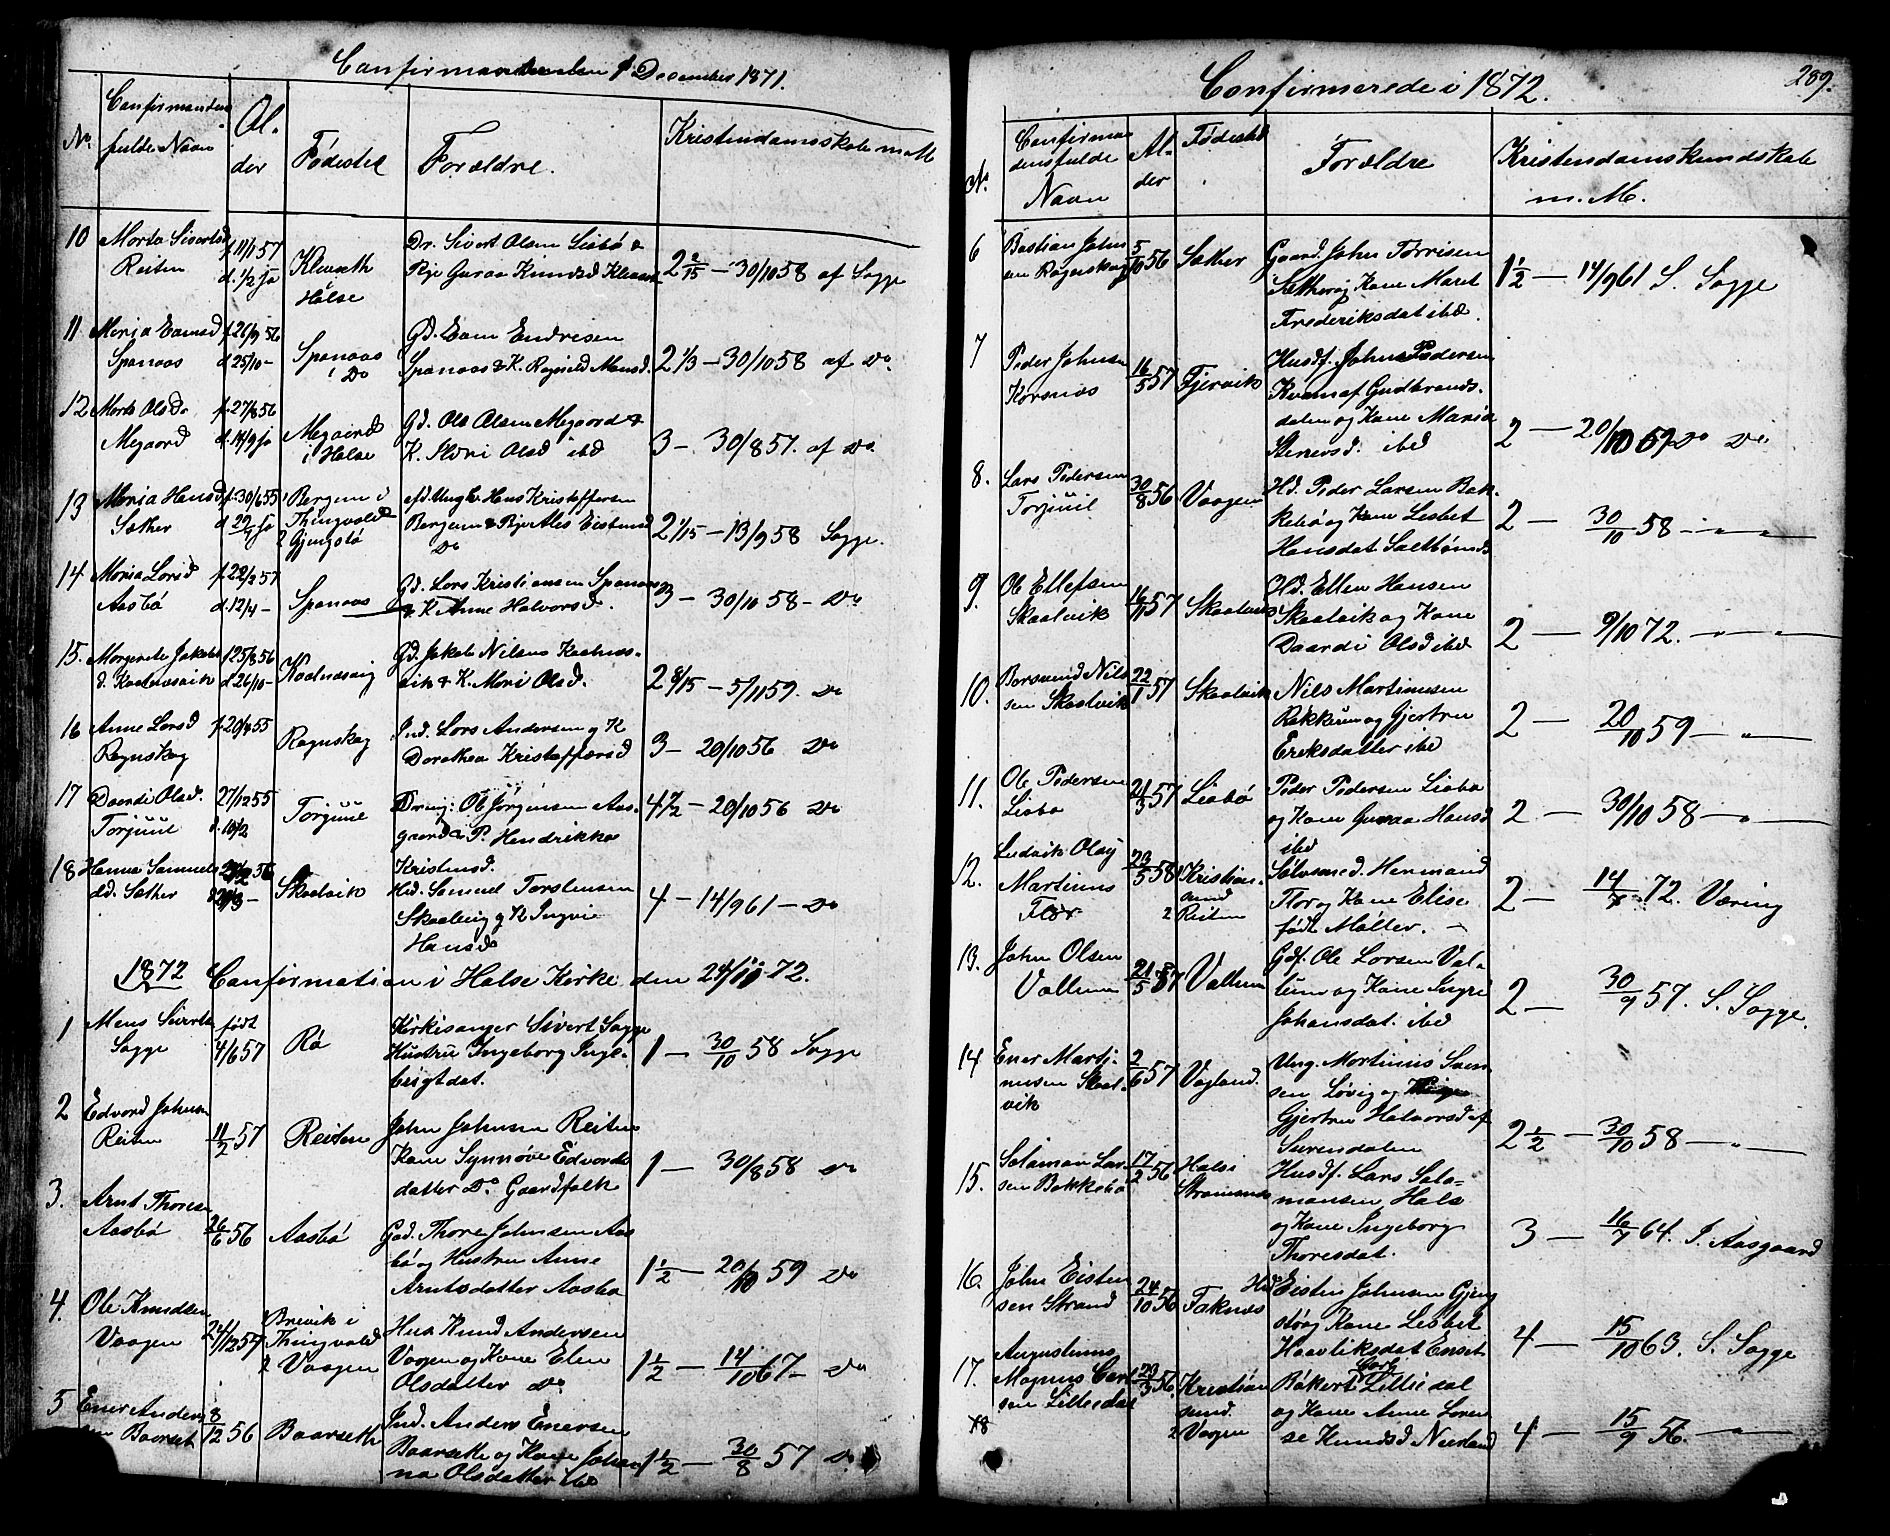 Confirmanderden 1 December 1871.
No
Confirmandens
fulde Navn
Al-
der
Födested
Forældre.
Kristendomsskab m. M
10 Marta Sivertsd
Reiten
f 11/1 57
d. 1/2 ja
Klevseth
Halse
Dr. Sivert Olsen Lisbö &
Pige Guraa Knudsd Klevseth
2 2/15 — 30/10 58 af Sagge
11 Maria Eansd
Spanaas
f 26/9 56
d 25/10 -
Spanaas
Do
Gd. Ean Endresen
Spanaas & K. Ragnild Mansd.
2 1/3 — 30/10 58 af Do
12 Marta Olsd.
Megaard
f. 27/8 56
d. 14/9 ja
Megaard
i Halse
Gd. Ole Olsen Megaard &
K. Mari Olsd ibd
3 — 30/8 57. af Do
13 Maria Hansd
Sæther
f. 30/6 55
1 Bergem i
Thingvold
2 Gjengstö
Ungk. Hans Kristoffersen
Bergem & Pige Ales Eistensd
Do
2 1/15 — 13/9 58 Sagge.
14 Maria Larsd
Aasbö
f. 22/2 57
d. 12/4 -
Spanaas
Gd. Lars Kristiansen Spanaas
& K Anne Halvorsd.
3 — 30/10 58 — Do
15. Margrete Jakobs
d. Kaalvasvik
f 25/8 56
d 26/10 -
Kaalvasvig
Gd. Jakob Nilsen Kaalvas-
vik & K. Mari Olsd.
2 8/15 — 5/11 59. Do
16 Anne Larsd
Rognskog
f. 20/9 55
Rognskog
Ind. Lars Andersen g K
Dorothea Kristoffersd
3 — 20/10 56 Do
17 Daardi Olsd.
Torjuul
27/12 55
d. 10/2
Torjuul
Dreng: Ole Jörgensen Aas-
gaard & P. Hendrikke
Kristensd.
4 1/2 — 20/10 56 Do
18 Hanna Samuels
dd. Sæther
Skaalvik
Hd. Samuel Torstensen
Skaalvig g K Ingrie
Hansd
4 — 14/9 61 — Do
1872 Confirmation i Halse Kirke den 24/11 72.
1 Mons Sivertsen
Sagge
født
4/6 57
Rö
Kirkesanger Sivert Sagge
Hustru Ingeborg Inge-
brigtdat.
1 — 30/10 58 Sagge
2 Edvard Johnsen
Reiten
11/2 57
Reiten
John Johnsen Reiten
Kone Synnöve Edvards
datter Do. Gaardfolk
1 — 30/8 58 Do
3. Arnt Thoresen
Aasbö
26/6 56
Aasbö
Gd. Thore Johnsen Aas
bö og Hustru Anne
Arntsdatter Aasbö
1 1/2 — 20/10 59 Do
4. Ole Knudsen
Vaagen
24/12 57
1 Brevik i
Thingvold
2 Vaagen
Hus Knud Andersen
Vaagen og Kone Elen
Olsdatter Do
1 1/2 — 14/10 67 — Do
5 Ener Anders
sen Baarset
8/12 56
Baarseth
Ind. Anders Enersen
Baarseth og Kone Johan
na Olsdatter ibd
1 1/2 — 30/8 57 Do
Confirmerede i 1872.
289.
No.
Confirman
densfulde
Navn
Al-
der
Födested
Forældre
Kristendomskundskab
m. M.
6 Bastian John
sen Rognskog
5/10 56
Sæther
Gaard. John Torrisen
Sæther og Kone Maret
Frederiksdat ibd.
1 1/2 — 14/9 61 S. Sagge
7 Peder Johnsen
Korsnæs
16/5 57
Fjervik
Husdf. John Pedersen
Kvam af Gudbrands-
dalen og Kone Maria
Stenersd. ibd
2 — 20/10 67 Do Do
8. Lars Pedersen
Torjuul
30/8 56
Vaagen
Hd. Peder Larsen Bak-
kebö og Kone Lisbet
Hansdat Sætbönd
2 — 30/10 58 — " — " —
9. Ole Ellefsen
Skaalvik
16/11 57
Skaalvik
Hd. Ellen Hansen
Skaalvik og Kone
Daardi Olsd ibd
2 — 9/10 72. — " — " —
10. Børsvend Nils
sen Skaalvik
22/1 57
Skaalvik
Nils Martinusen
Rakkum og Gjertru
Ereksdatter ibd
2 — 20/10 59 — " —
11. Ole Pedersen
Lisbö
21/3 57
Lisbö
Peder Pedersen Lisbö
og Kone Guraa Hansd
ibd
2 — 30/10 58 — " —
12. Ludvik Olaij
Martinus
Flor
23/5 58
1 Kristian-
sund
2 Reiten
Sølvsmed. Hermand
Flor og Kone Elise
født Møller. —
2 — 14/7 72. Væring
13. John Olsen
Vallum
21/5 57
Vallum
Gdf. Ole Larsen Val-
lum og Kone Ingri
Johansdat. ibd
2 — 30/9 57. S. Sagge.
14 Ener Marti-
nusen Skaal-
vik
2/6 57
Vagland.
Ung. Martinus Sven
sen Løvig og Pige
Gjertru Halvorsd af
Surendalen
2 1/2 — 30/10 58 — " —
15. Salamon Lar
sen Bakkebö
17/2 56
Halse
Strømmen
Husdf. Lars Sala-
monsen Hals
og Kone Ingeborg
Thoresdat.
3 — 16/7 64. I. Aasgaard
16 John Eisten
sen Strand
24/10 56
Taknæs
Hd Eistin Johnsen Gjeng
stö og Kone Lisbet
Haavliksdat Enset
4 — 15/10 63. S. Sagge
17. Augustinus
Magnus Carl
sen Lilledal
23/3 56.
1 Kristian
sund.
2 Vaagen
Bökert Carl Lilledal
og Kone Anne Loren
se Knudsd Neerland
4 — 15/9 56. — " —
18